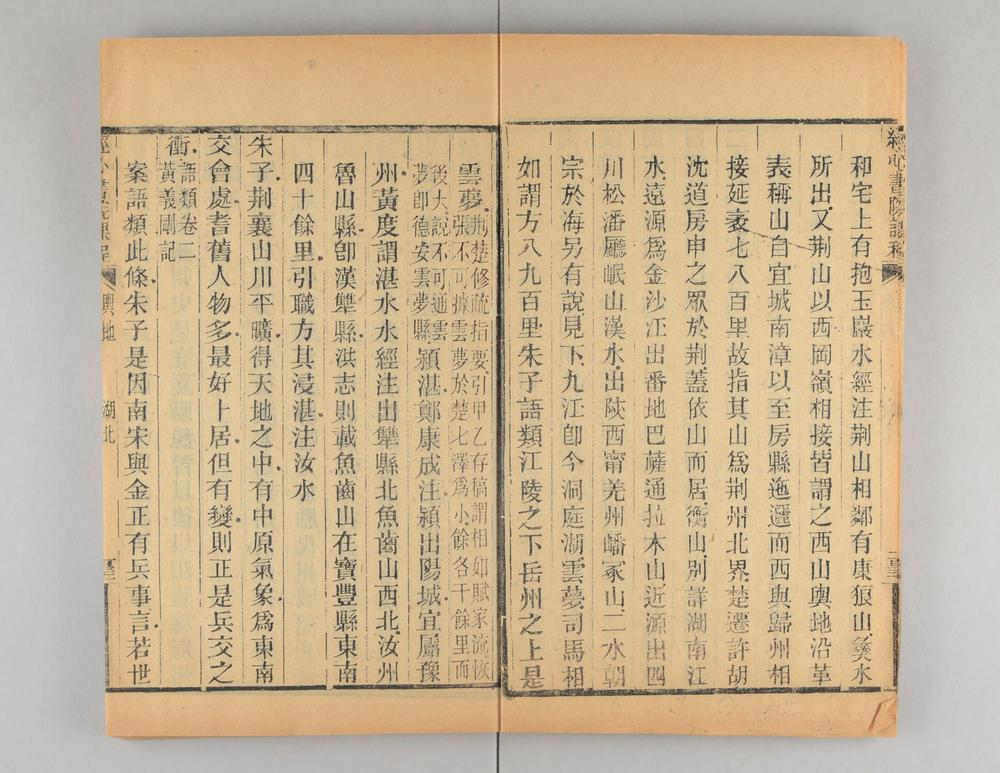 和宅上有抱玉巖水經注荆山相鄰有康狼山夔水
所出又荆山以西岡嶺相接皆謂之西山輿地沿革
表稱山自宜城南漳以至房縣迤邐而西與歸州相
接延袤七八百里故指其山爲荆州北界楚遷許胡
沈道房申之眾於荆蓋依山而居衡山别詳湖南江
水遠源爲金沙江出番地巴薩通拉木山近源出四
川松潘廳岷山漢水出陜西甯羌州嶓冢山二水朝
宗於海另有說見下九江卽今洞庭湖雲夢司馬相
如謂方八九百里朱子語類江陵之下岳州之上是
經心書院課程
雲夢荆楚修疏指要引甲乙存稿謂相如賦家流恢
張不可據雲夢於楚七澤爲小餘各千餘里而
後大說不可通雲
夢卽德安雲夢縣潁湛鄭康成注潁出陽城宜屬豫
州黃度謂湛水水經注出犨縣北魚齒山西北汝州
魯山縣卽漢犨縣洪志則載魚齒山在寶豐縣東南
四十餘里引職方其浸湛注汝水
朱子荆襄山川平曠得天地之中有中原氣象爲東南
交會處耆舊人物多最好卜居但有變則正是兵交之
衝語類卷二
黃義剛記
案語類此條朱子是因南宋與金正有兵事言若世
輿地 湖北